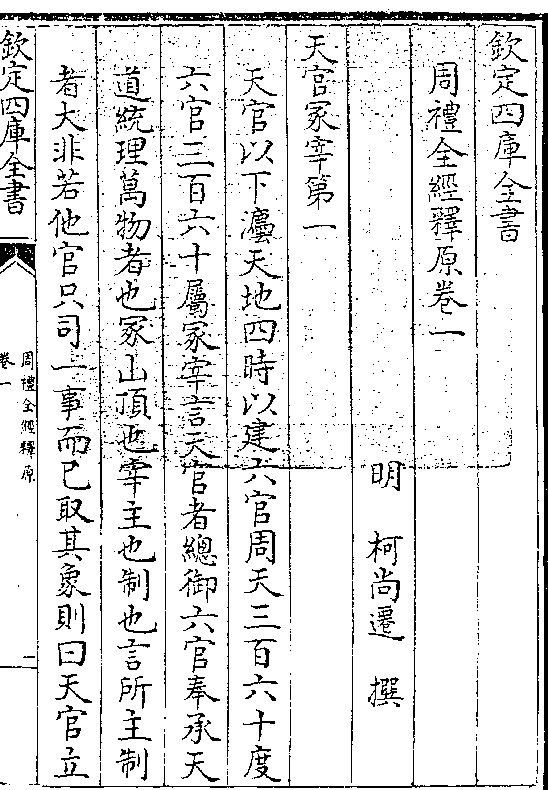 欽定四庫全書
周禮全經釋原卷一
明 柯尚遷 撰
天官冡宰第一
天官以下灋天地四時以建六官周天三百六十度
六官三百六十屬冡宰言天官者總御六官奉承天
道統理萬物者也冡山頂也宰主也制也言所主制
者大非若他官只司一事而已取其象則曰天官立
欽定四庫全書
周禮全經釋原
卷一
一